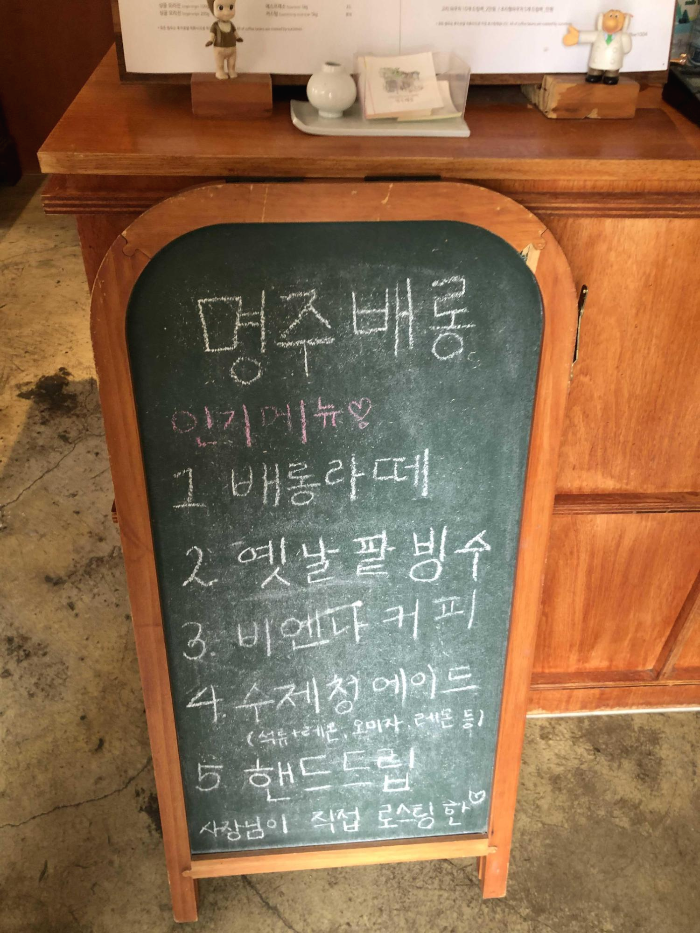 명주배롱
인기메뉴♡
1. 배롱라떼
2. 옛날 팥빙수
3. 비엔나커피
4. 수제청에이드
(석류+레몬, 오미자, 레몬 등)
5. 핸드드립
사장님이 직접 로스팅한♡